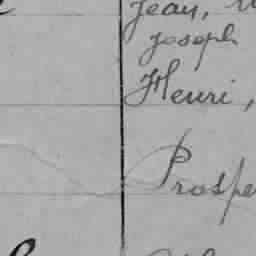 Jean,
Joseph
Henri,
Prospe